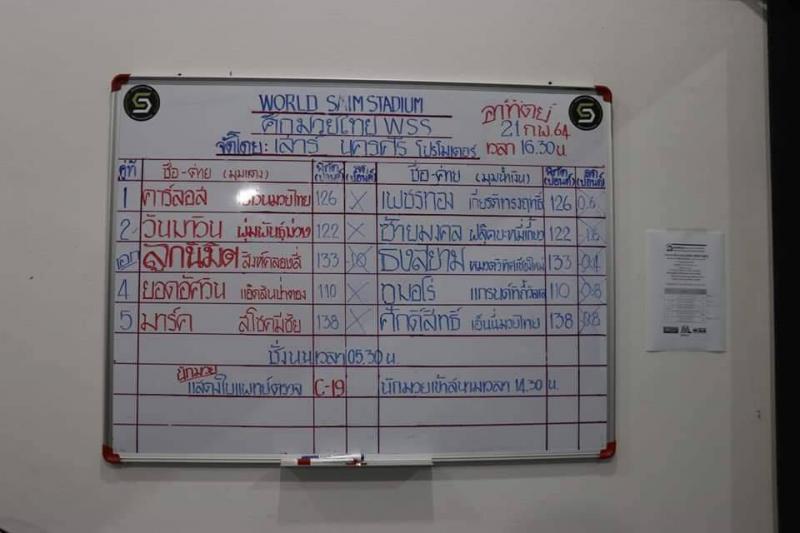 WORLD SIAM STADIUM
ศึกมวยไทย WSS
จัดโดย: เสาร์ นครศรี โปรโมเตอร์
อาทิตย์
21 ก.พ. 64
เวลา 16.30 น
คู่ที่ ชื่อ-ค่าย (มุมแดง) พิกัด (ปอนด์) ชื่อ-ค่าย (มุมน้ำเงิน) พิกัด (ปอนด์)
1 คาร์ลอส มวยไทย 126 X เพชรทอง เกียรติทรงฤทธิ์ 126 0.6
2 วันมาวิน พุ่มพันธุ์ม่วง 122 X ซ้ายมงคล 122
เอก ลูกนิมิต สิงห์คลองสี่ 133 ธงสยาม 133 0.4
4 ยอดอัศวิน แอ๊ดสันป่าตอง 110 X ภูมอโร่ 110 0.8
5 มาร์ค ส.โชคมีชัย 138 X ศักดิ์สิทธิ์ เฮ็นนี่มวยไทย 138 0.8
ชั่ง นน เวลา 05.30 น.
นักมวย
แสดงใบแพทย์ตรวจ C-19 นักมวยเข้าสนามเวลา 14.30 น.